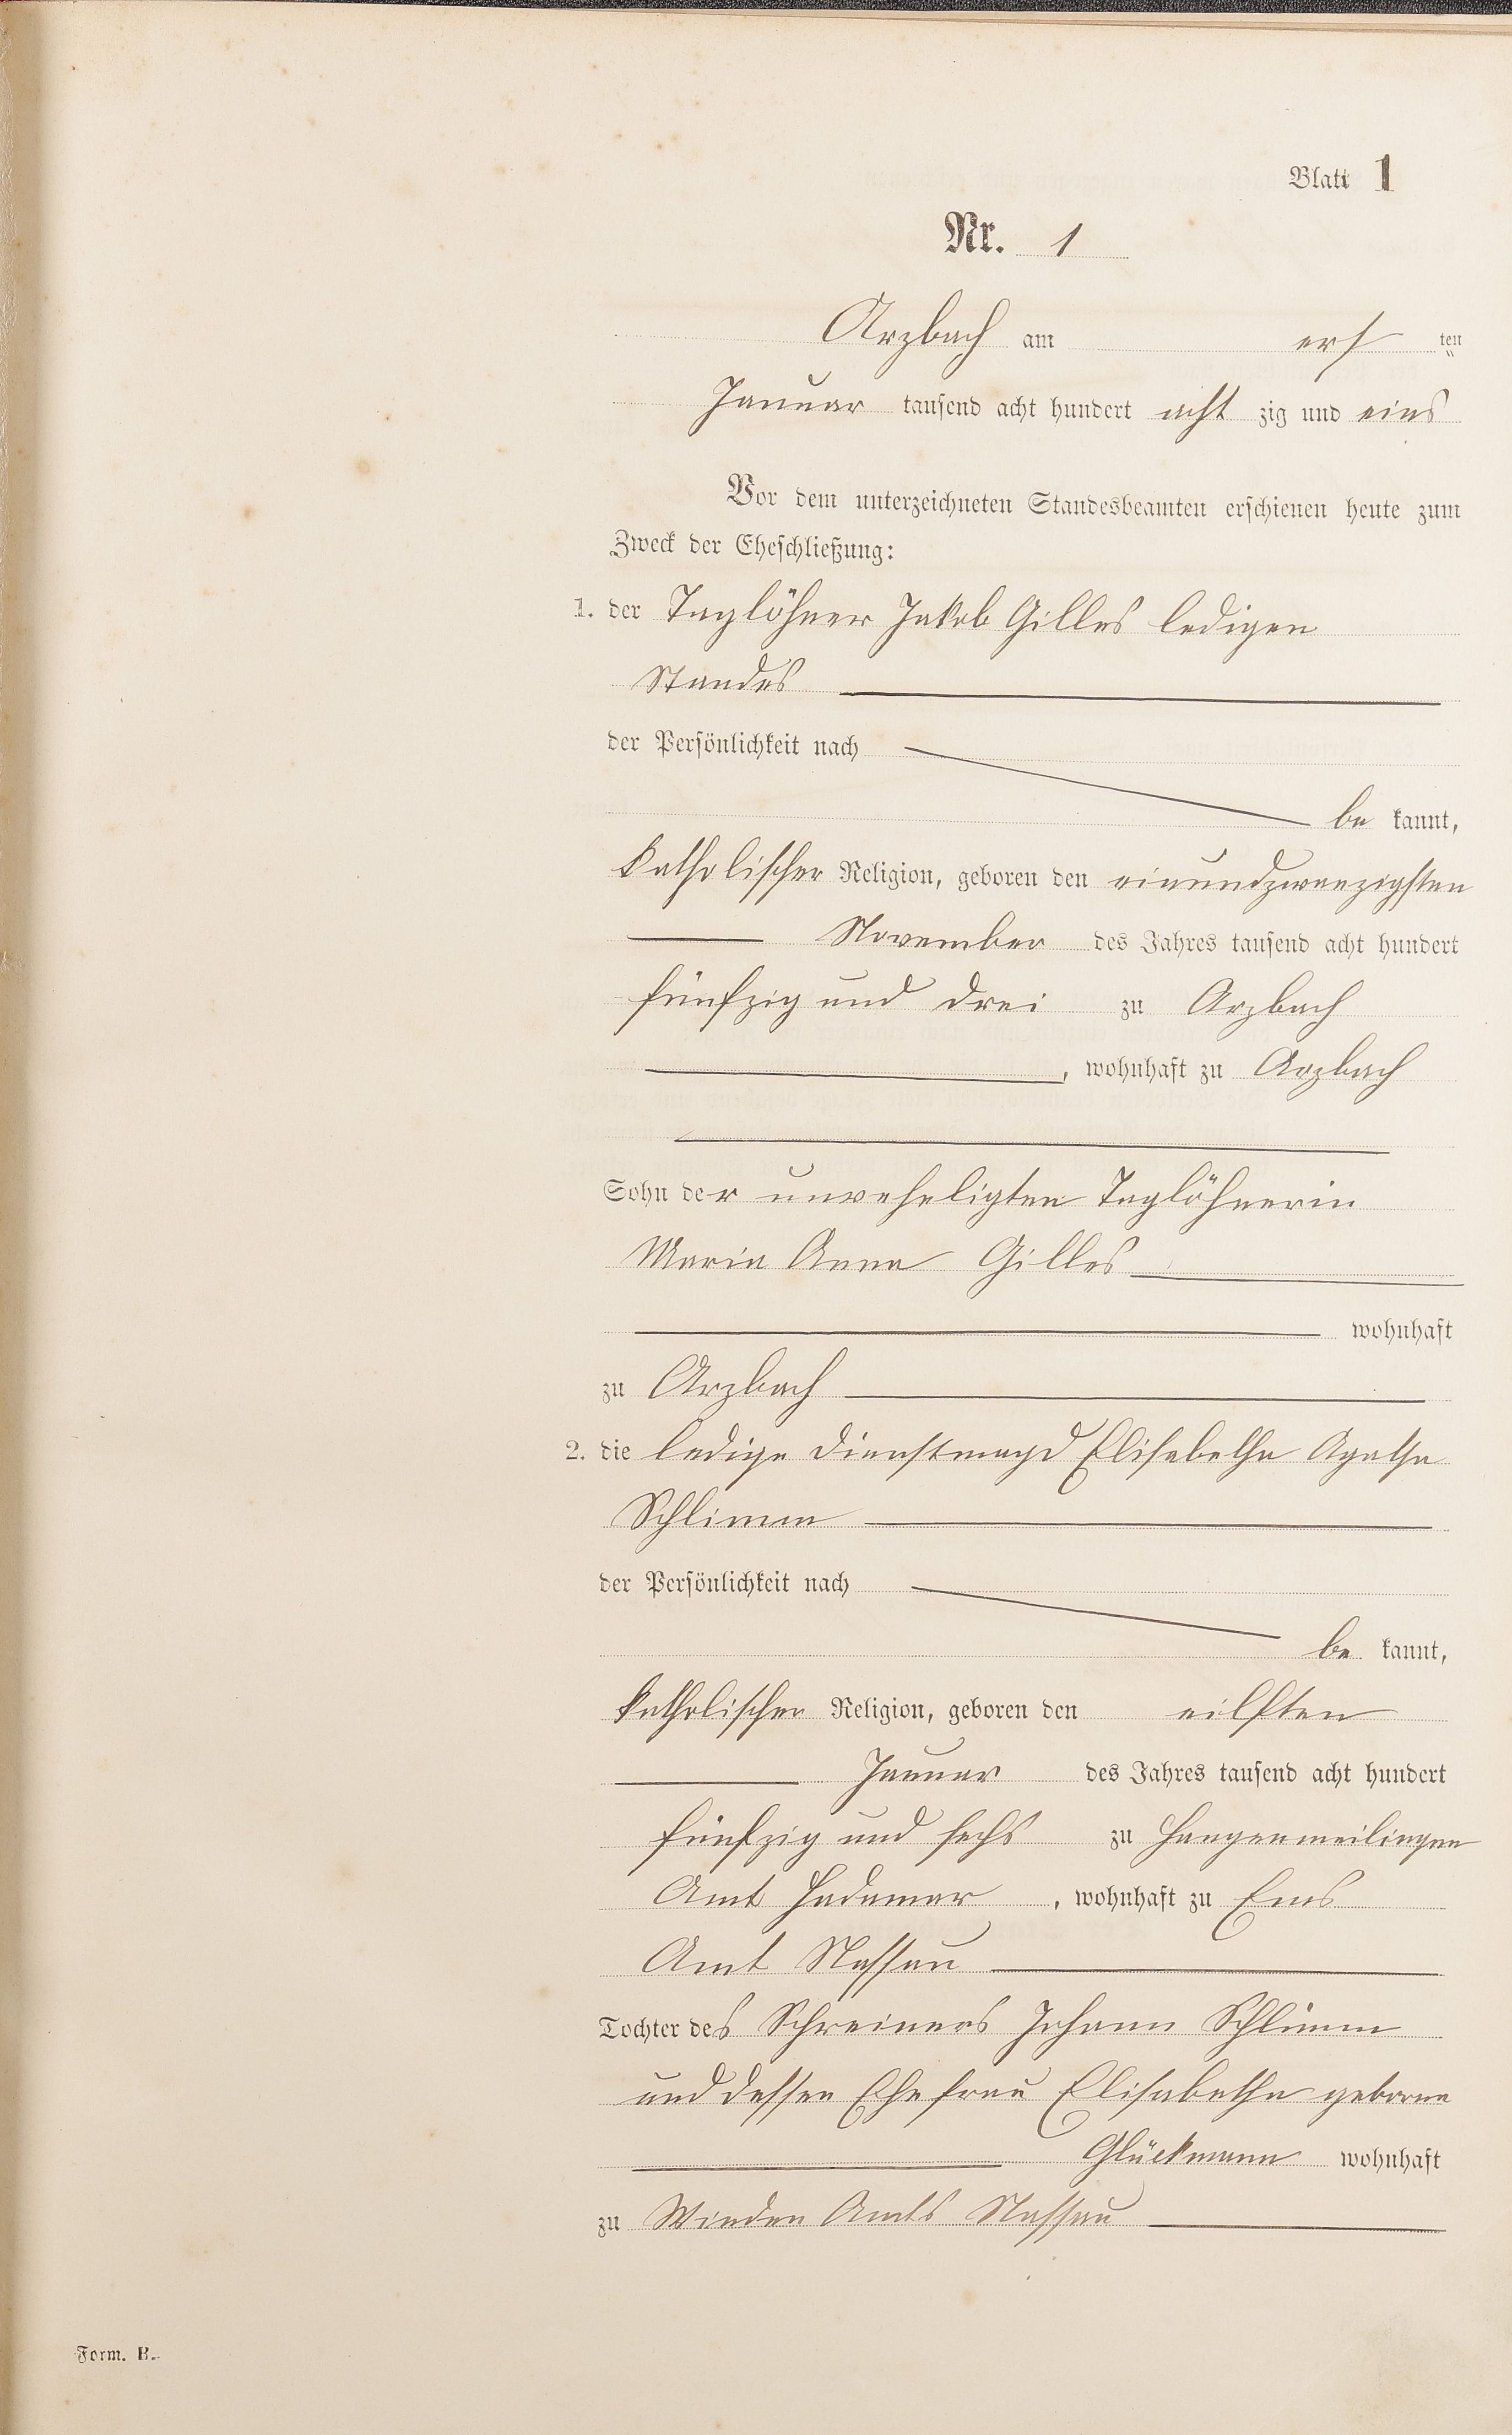 Blatt 1
Nr. 1
Arzbach am ersten
Januar tausend acht hundert acht zig und eins
Vor dem unterzeichneten Standesbeamten erschienen heute zum
Zweck der Eheschließung:
1. der Taglöhner Jakob Gilles ledigen
Standes
der Persönlichkeit nach
be kannt,
katholischer Religion, geboren den einundzwanzigsten
November des Jahres tausend acht hundert
fünfzig und drei zu Arzbach
, wohnhaft zu Arzbach
Sohn der unveheligten Taglöhnerin
Maria Anna Gilles
wohnhaft
zu Arzbach
2. die ledige Dienstmagd Elisabetha Agatha
Schlimm
der Persönlichkeit nach
be kannt,
katholischer Religion, geboren den eilften
Januar des Jahres tausend acht hundert
fünfzig und sechs zu Hangenmeilingen
Amt Hadamar , wohnhaft zu Ems
Amt Nassau
Tochter des Schreiners Johann Schlimm
und dessen Ehefrau Elisabetha geborne
Glückmann wohnhaft
zu Winden Amts Nassau
Form. B.